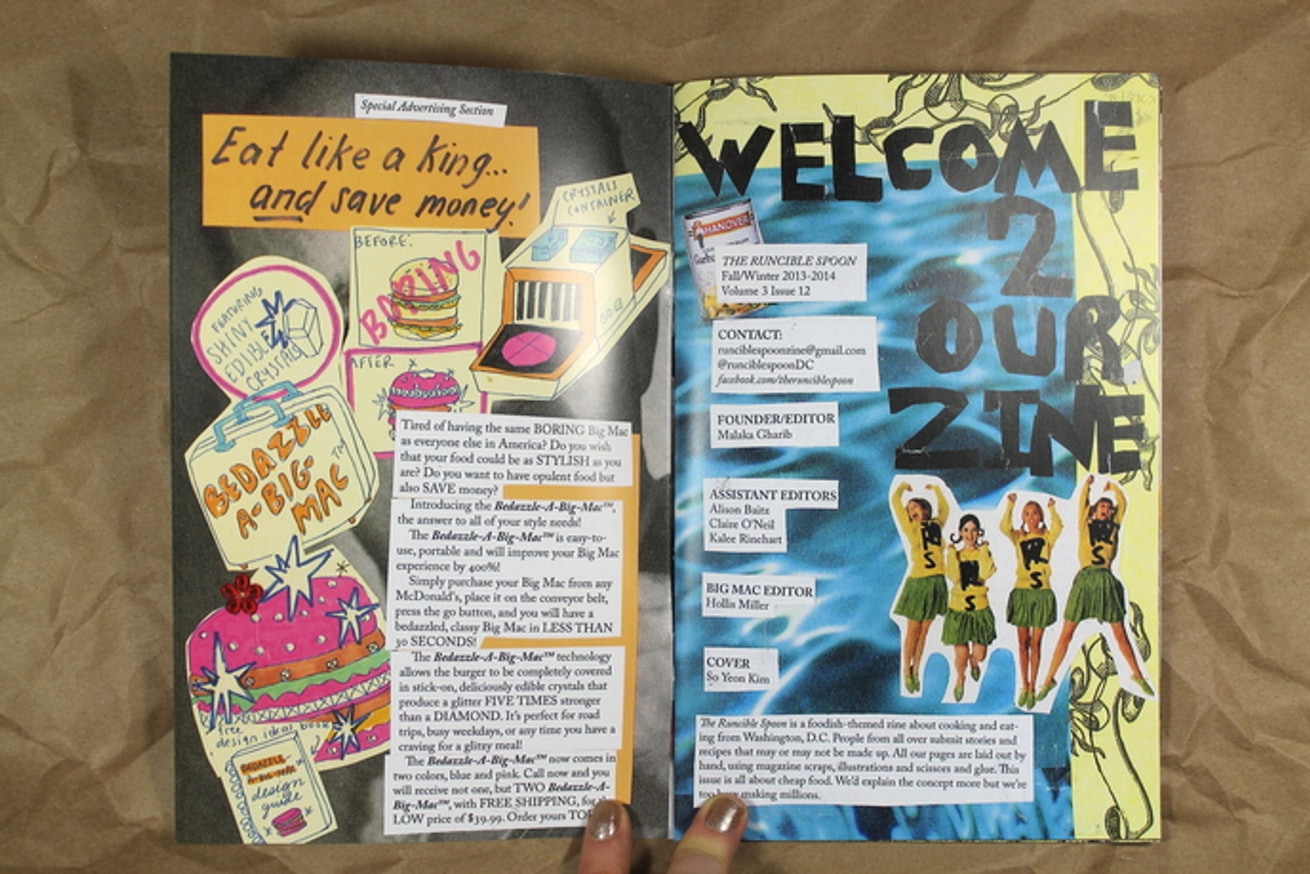 Special Advertising Section
Eat like a king...
and save money!
CRYSTALS
CONTAINER
BEFORE:
BORING
FEATURING
SHINY
EDIBLE
CRYSTALS
GO
AFTER
BEDAZZLE
A-BIG-
MAC TM
Tired of having the same BORING Big Mac
as everyone else in America? Do you wish
that your food could be as STYLISH as you
are? Do you want to have opulent food but
also SAVE money?
Introducing the Bedazzle-A-Big-Mac™,
the answer to all of your style needs!
The Bedazzle-A-Big-Mac™ is easy-to-
use, portable and will improve your Big Mac
experience by 400%!
Simply purchase your Big Mac from any
McDonald's, place it on the conveyor belt,
press the go button, and you will have a
bedazzled, classy Big Mac in LESS THAN
30 SECONDS!
The Bedazzle-A-Big-Mac™ technology
allows the burger to be completely covered
in stick-on, deliciously edible crystals that
produce a glitter FIVE TIMES stronger
than a DIAMOND. It's perfect for road
trips, busy weekdays, or any time you have a
craving for a glitzy meal!
The Bedazzle-A-Big-Mac™ now comes in
two colors, blue and pink. Call now and you
will receive not one, but TWO Bedazzle-A-
Big-Mac™, with FREE SHIPPING, for a
LOW price of $39.99. Order yours
free
design ideas book
BEDAZZLE
A-BIG-MAC
design
guide
WELCOME
2
OUR
ZINE
HANOVER
THE RUNCIBLE SPOON
Fall/Winter 2013-2014
Volume 3 Issue 12
CONTACT:
runciblespoonzine@gmail.com
@runciblespoonDC
facebook.com/therunciblespoon
FOUNDER/EDITOR
Malaka Gharib
ASSISTANT EDITORS
Alison Baitz
Claire O'Neil
Kalee Rinehart
BIG MAC EDITOR
Hollis Miller
COVER
So Yeon Kim
R S
R S
R S
R S
The Runcible Spoon is a foodish-themed zine about cooking and eat-
ing from Washington, D.C. People from all over submit stories and
recipes that may or may not be made up. All our pages are laid out by
hand, using magazine scraps, illustrations and scissors and glue. This
issue is all about cheap food. We'd explain the concept more but we're
too busy making millions.